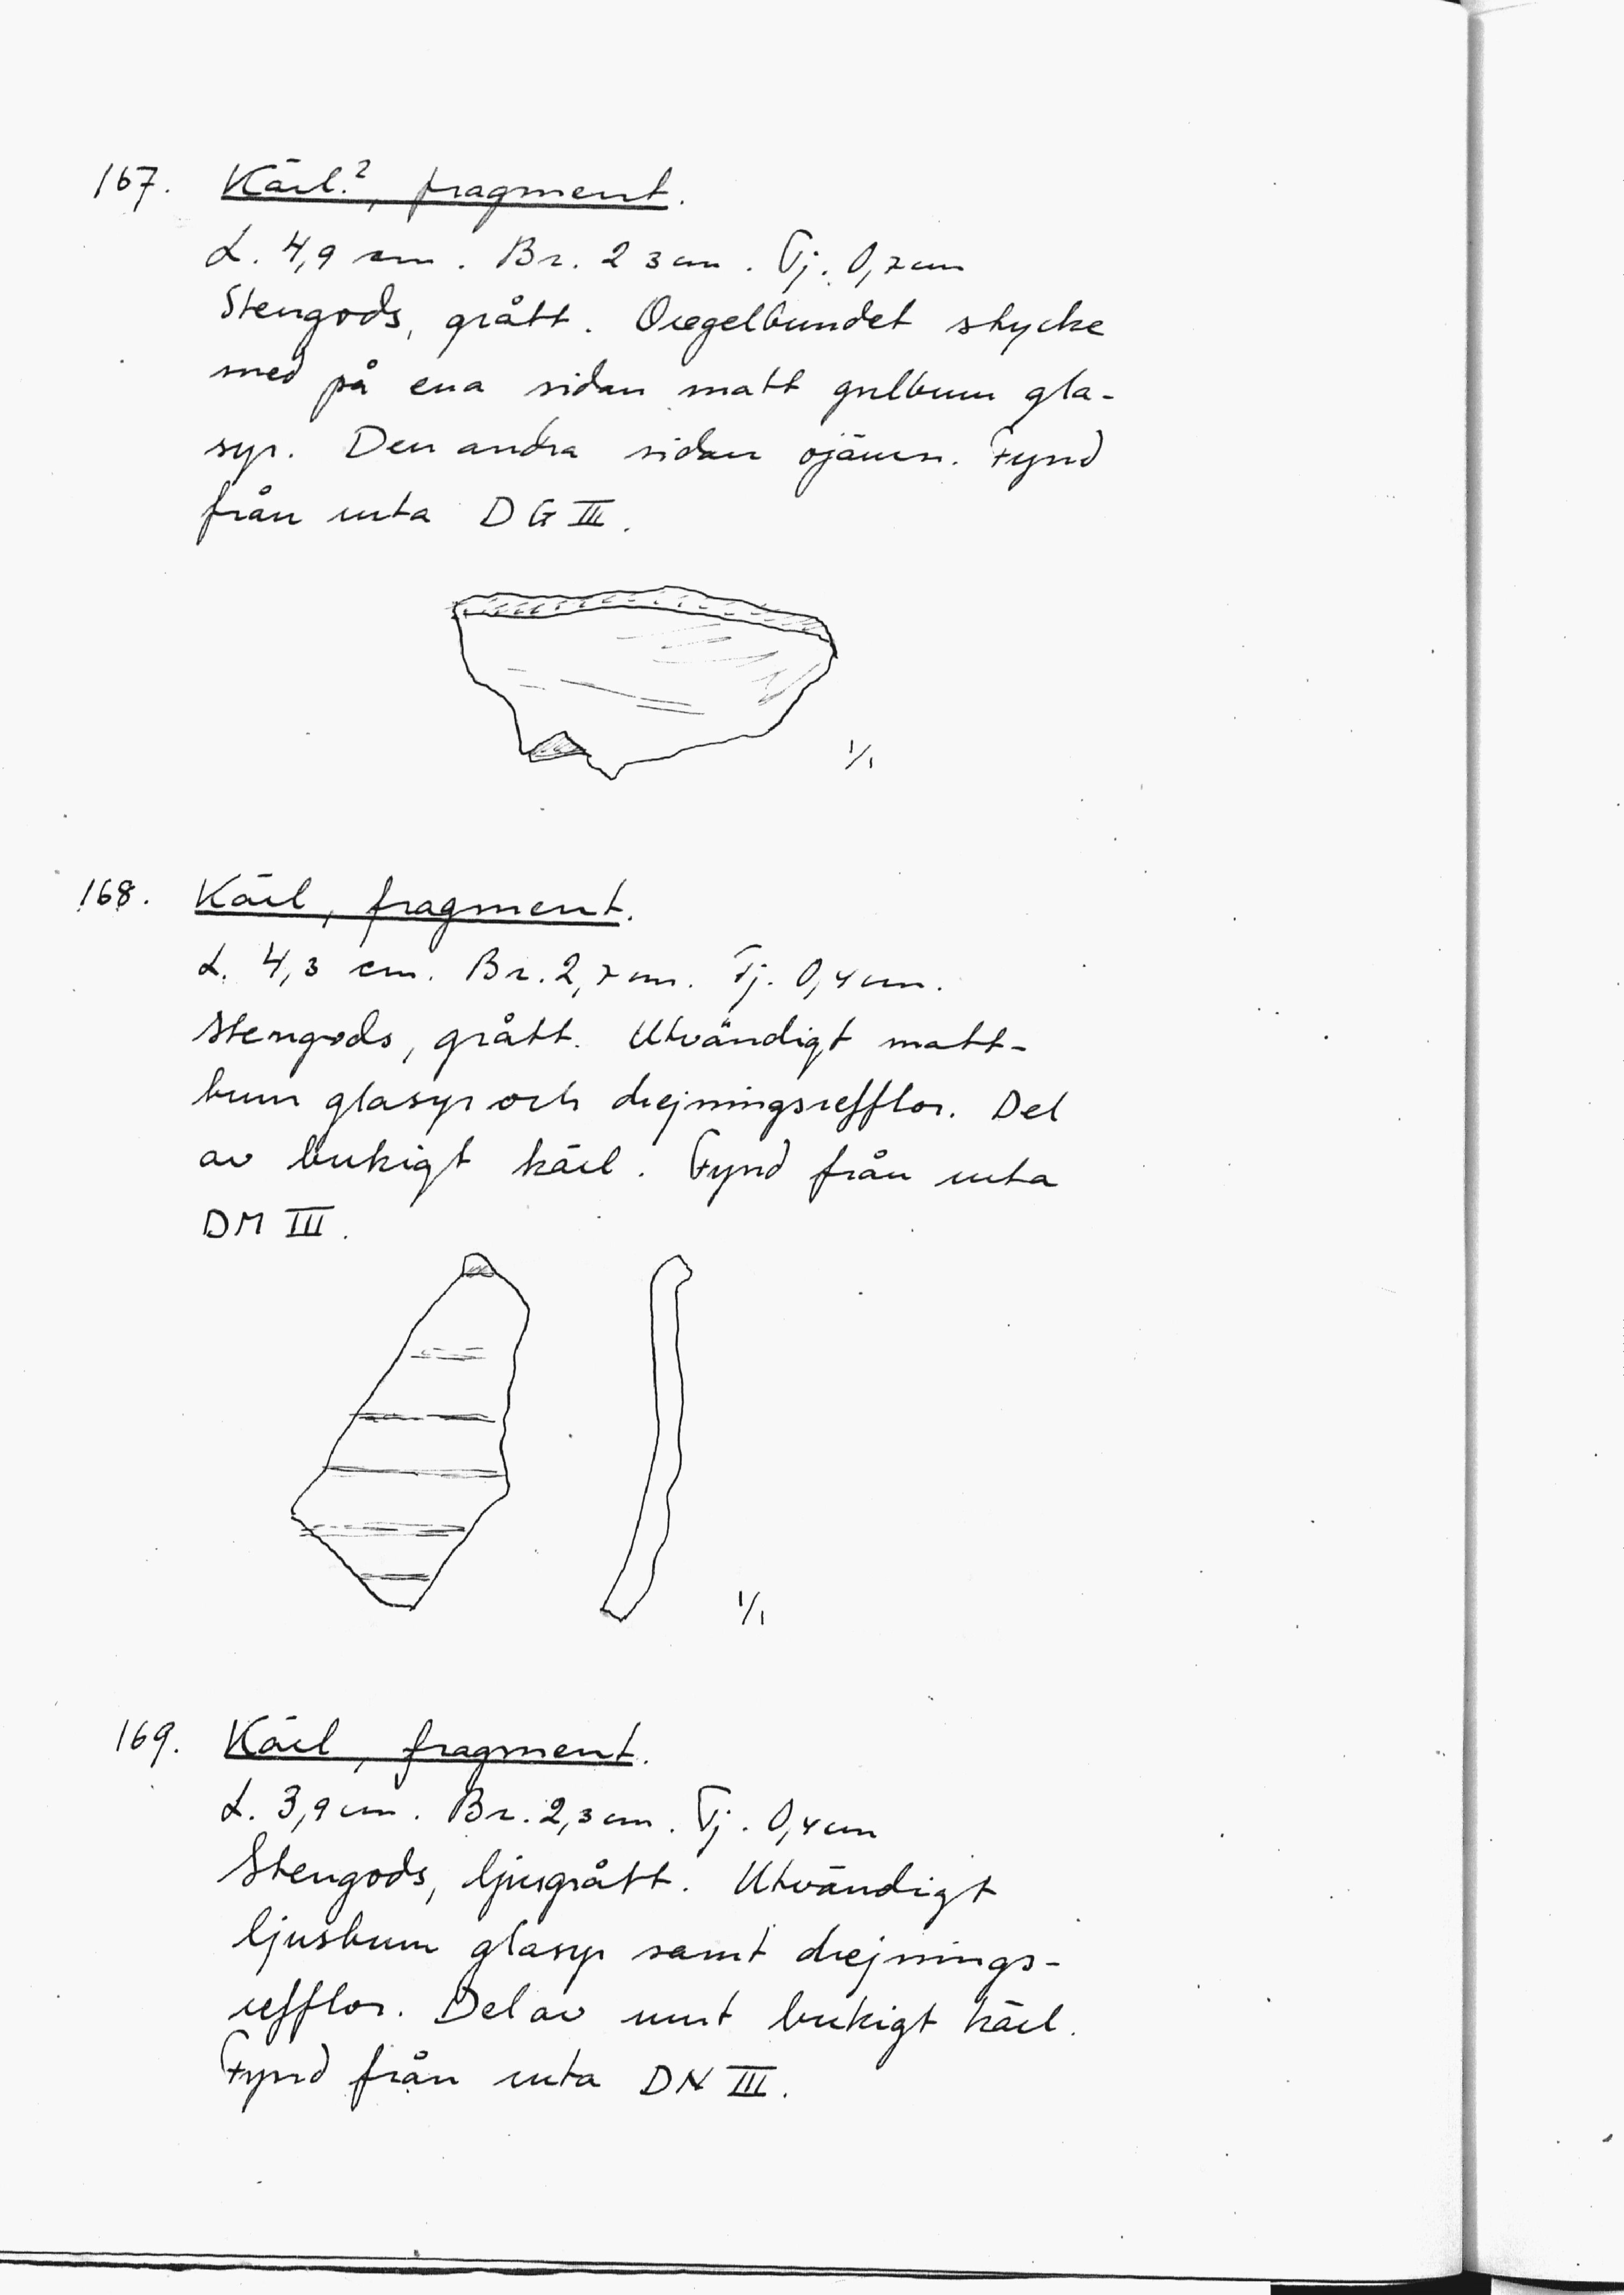 167. Kärl?, fragment.
L. 4,9 cm. Br. 2 3 cm. Tj. 0,7 cm
Stengods, grått. Oregelbundet stycke
med på ena sidan matt gulbrun gla-
syr. Den andra sidan ojämn. Fynd
från ruta DG III.
1/1
168. Kärl, fragment.
L. 4,3 cm. Br. 2,7 cm. Tj. 0,4 cm.
Stengods, grått. Utvändigt matt-
brun glasyr och drejningsrefflor. Del
av bukigt kärl. Fynd från ruta
DM III.
1/1
169. Kärl, fragment.
L. 3,9 cm. Br. 2,3 cm. Tj. 0,4 cm
Stengods, ljusgrått. Utvändigt
ljusbrun glasyr samt drejnings-
refflor. Del av runt bukigt kärl.
Fynd från ruta DN III.